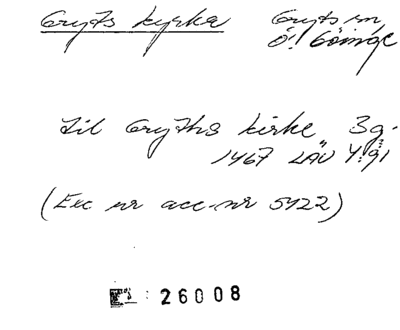 Gryts kyrka
Gryts sn,
Ö. Göinge
til Gryths kirke 3g.
1467 LÄU 4:91
(Exc ur acc.nr 5422)
26008